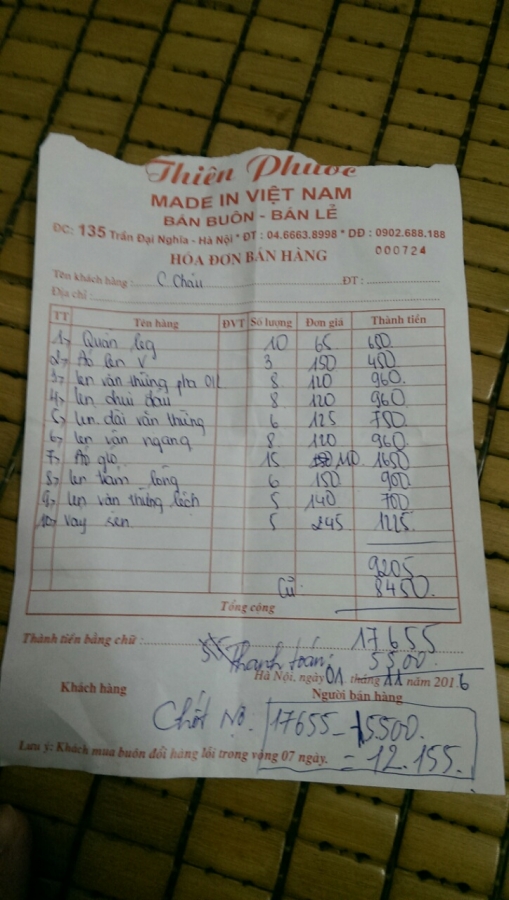 Thiên Phước
MADE IN VIỆT NAM
BÁN BUÔN - BÁN LẺ
ĐC: 135 Trần Đại Nghĩa - Hà Nội * ĐT : 04.6663.8998 * DĐ : 0902.688.188
HÓA ĐƠN BÁN HÀNG 000724
Tên khách hàng : C Châu ĐT :
Địa chỉ :
TT Tên hàng ĐVT Số lượng Đơn giá Thành tiền
1 Quần leg 10 65 650
2 Áo len V 3 150 450
3 len vân thừng pha 8 120 960
4 len chui đầu 8 120 960
5 len dài vân thừng 6 125 750
6 len vân ngang 8 120 960
7 Áo gió 15 110 1650
8 len lông 6 150 900
9 len vân thừng lệch 5 140 700
10 Váy sen 5 245 1225
9205
Cũ: 8450
Tổng cộng
Thành tiền bằng chữ : 17655
Thanh toán: 5500
Hà Nội, ngày 01 tháng 11 năm 2016
Khách hàng Người bán hàng
Chốt Nợ. 17655 - 5500.
= 12.155.
Lưu ý: Khách mua buôn đổi hàng lỗi trong vòng 07 ngày.